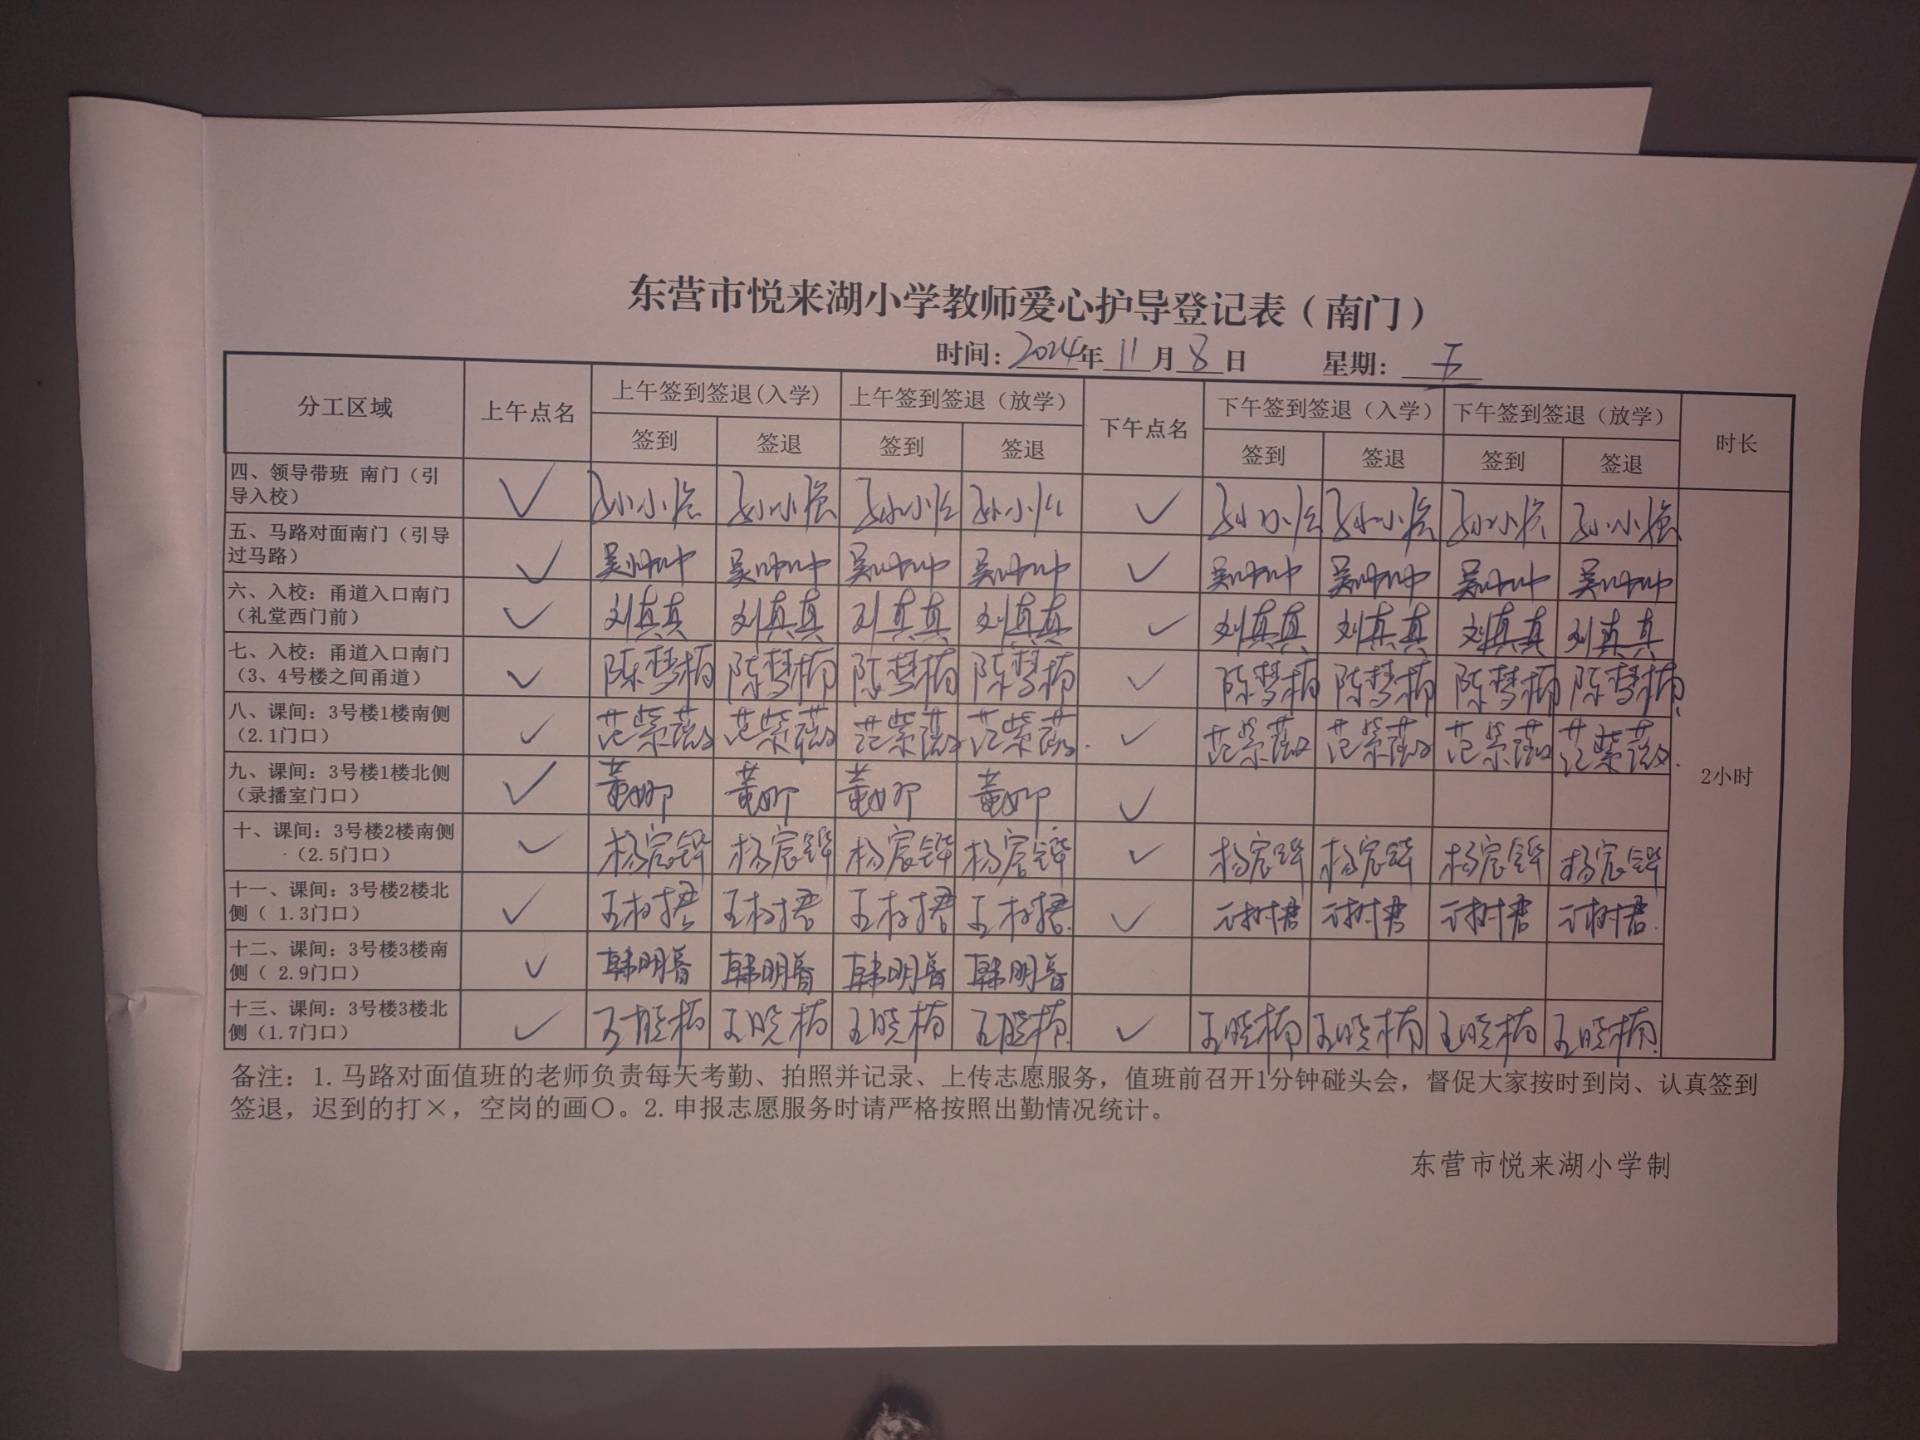 东营市悦来湖小学教师爱心护导登记表（南门）
时间：2024年11月8日 星期：五
分工区域 上午点名 上午签到签退(入学) 上午签到签退（放学） 下午点名 下午签到签退（入学） 下午签到签退（放学） 时长
签到 签退 签到 签退 签到 签退 签到 签退
四、领导带班 南门（引
导入校） ✓ 孙小 孙小 孙小 孙小 ✓ 孙小 孙小 孙小 孙小
五、马路对面南门（引导
过马路） ✓ 吴 吴 吴 吴 ✓ 吴 吴 吴 吴
六、入校：甬道入口南门
（礼堂西门前） ✓ 刘真真 刘真真 刘真真 刘真真 ✓ 刘真真 刘真真 刘真真 刘真真
七、入校：甬道入口南门
（3、4号楼之间甬道） ✓ 陈梦楠 陈梦楠 陈梦楠 陈梦楠 ✓ 陈梦楠 陈梦楠 陈梦楠 陈梦楠
八、课间：3号楼1楼南侧
（2.1门口） ✓ 范紫薇 范紫薇 范紫薇 范紫薇 ✓ 范紫薇 范紫薇 范紫薇 范紫薇
九、课间：3号楼1楼北侧
（录播室门口） ✓ 董娜 董娜 董娜 董娜 ✓
2小时
十、课间：3号楼2楼南侧
（2.5门口） ✓ 杨宸铧 杨宸铧 杨宸铧 杨宸铧 ✓ 杨宸铧 杨宸铧 杨宸铧 杨宸铧
十一、课间：3号楼2楼北
侧（ 1.3门口） ✓ 王树 王树 王树 王树 ✓ 树君 树君 树君 树君
十二、课间：3号楼3楼南
侧（ 2.9门口） ✓ 韩明 韩明 韩明 韩明
十三、课间：3号楼3楼北
侧(1.7门口） ✓ 王晓楠 王晓楠 王晓楠 王晓楠 ✓ 王晓楠 王晓楠 王晓楠 王晓楠
备注：1.马路对面值班的老师负责每天考勤、拍照并记录、上传志愿服务，值班前召开1分钟碰头会，督促大家按时到岗、认真签到
签退，迟到的打×，空岗的画〇。2.申报志愿服务时请严格按照出勤情况统计。
东营市悦来湖小学制